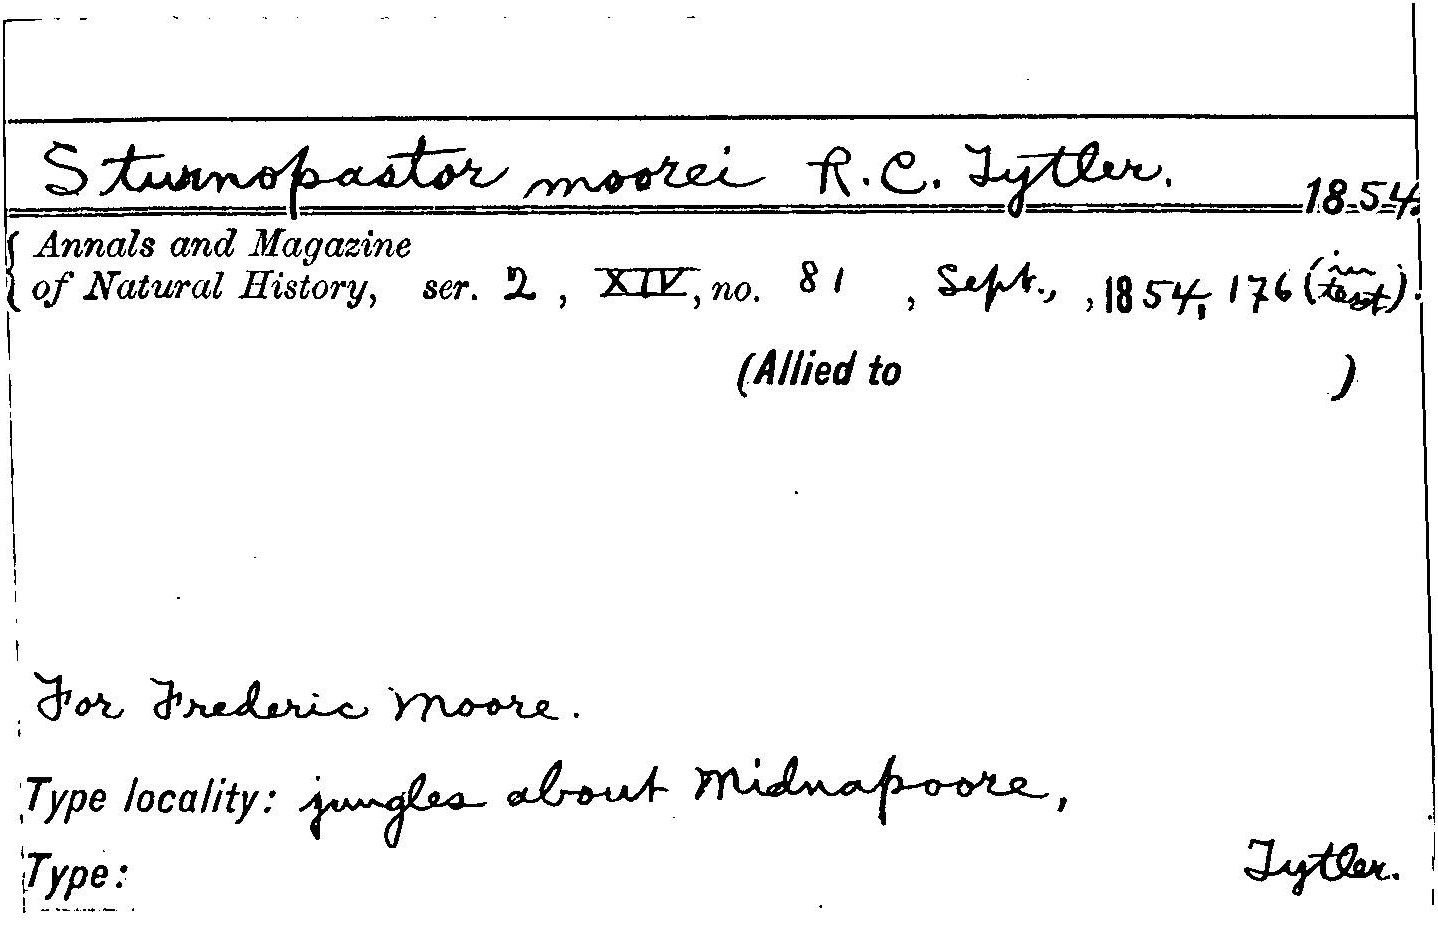 Sturnopastor moorei R. C. Tytler. 1854.
Annals and Magazine
of Natural History, ser. 2, XIV, no. 81, Sept., , 1854, 176 (in text).
(Allied to )
For Frederic Moore.
Type locality: jungles about Midnapoore,
Tytler.
Type: